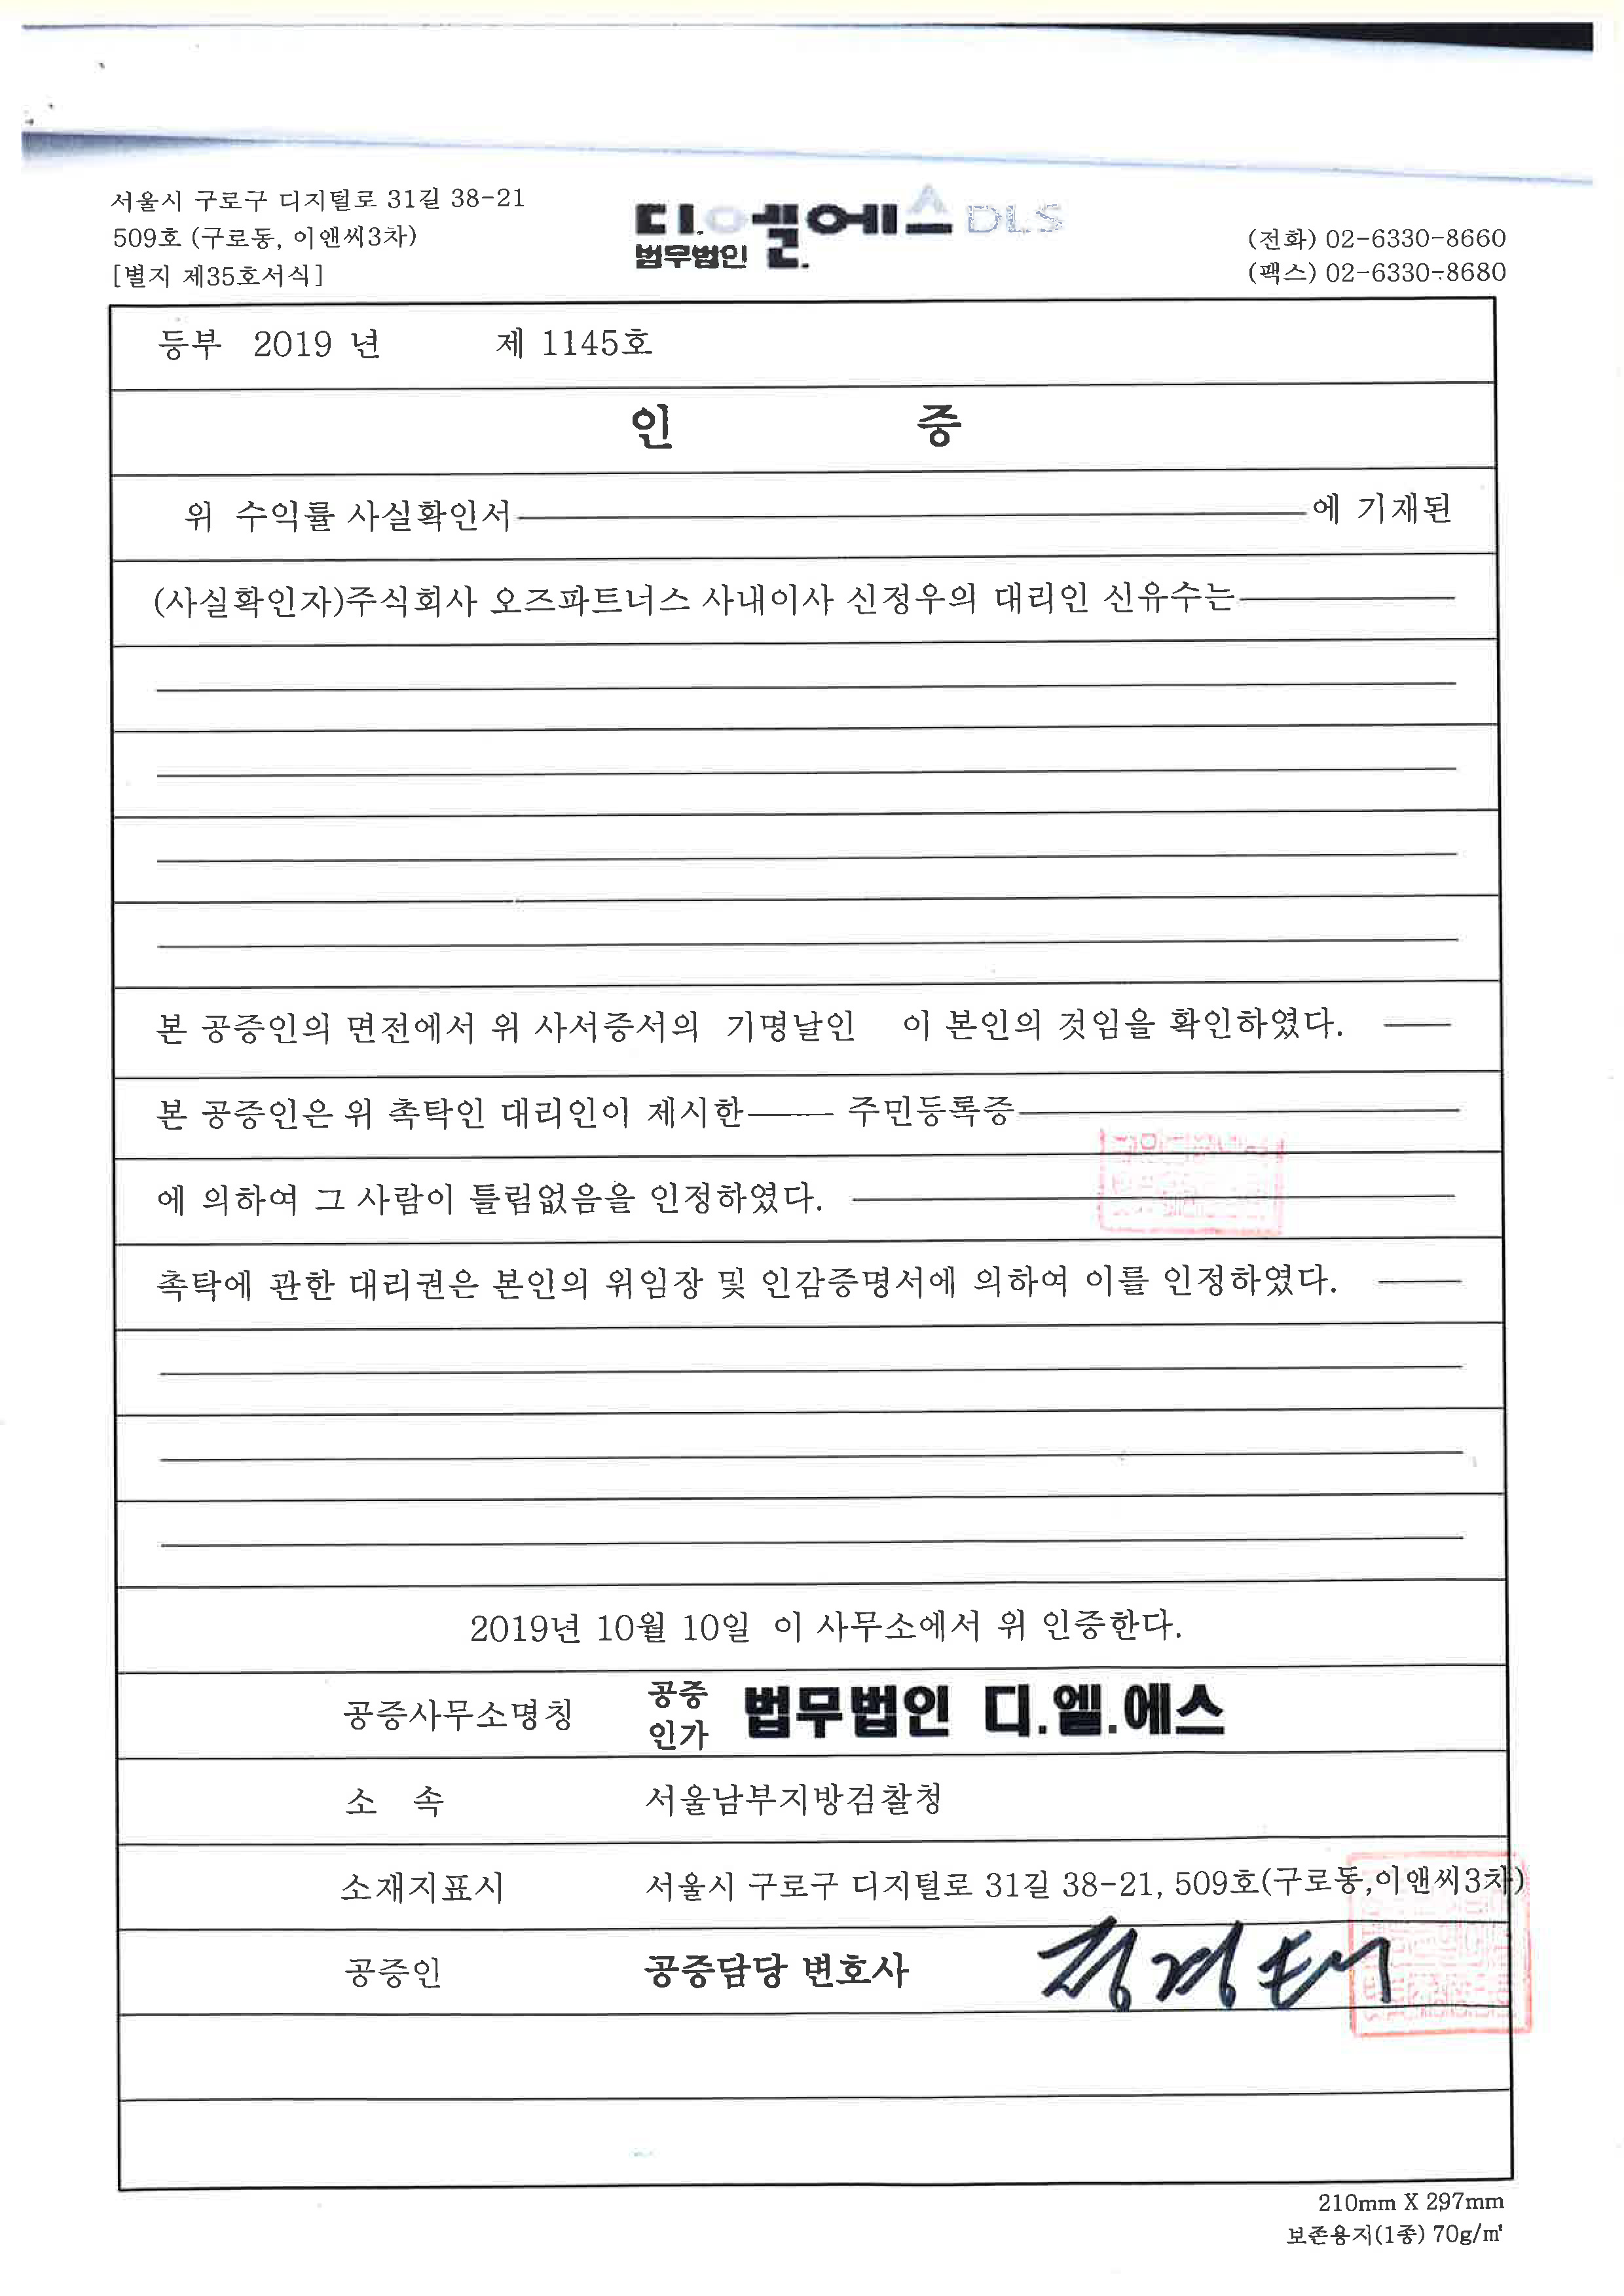 서울시 구로구 디지털로 31길 38-21
509호 (구로동, 이앤씨3차)
[별지 제35호서식]
디.엘.에스 DLS
법무법인
(전화) 02-6330-8660
(팩스) 02-6330-8680
등부 2019 년 제 1145호
인 증
위 수익률 사실확인서 에 기재된
(사실확인자)주식회사 오즈파트너스 사내이사 신정우의 대리인 신유수는
본 공증인의 면전에서 위 사서증서의 기명날인 이 본인의 것임을 확인하였다.
본 공증인은 위 촉탁인 대리인이 제시한 주민등록증
에 의하여 그 사람이 틀림없음을 인정하였다.
촉탁에 관한 대리권은 본인의 위임장 및 인감증명서에 의하여 이를 인정하였다.
2019년 10월 10일 이 사무소에서 위 인증한다.
공증사무소명칭 공증인가 법무법인 디.엘.에스
소 속 서울남부지방검찰청
소재지표시 서울시 구로구 디지털로 31길 38-21, 509호(구로동,이앤씨3차)
공증인 공증담당 변호사
210mm X 297mm
보존용지(1종) 70g/㎡